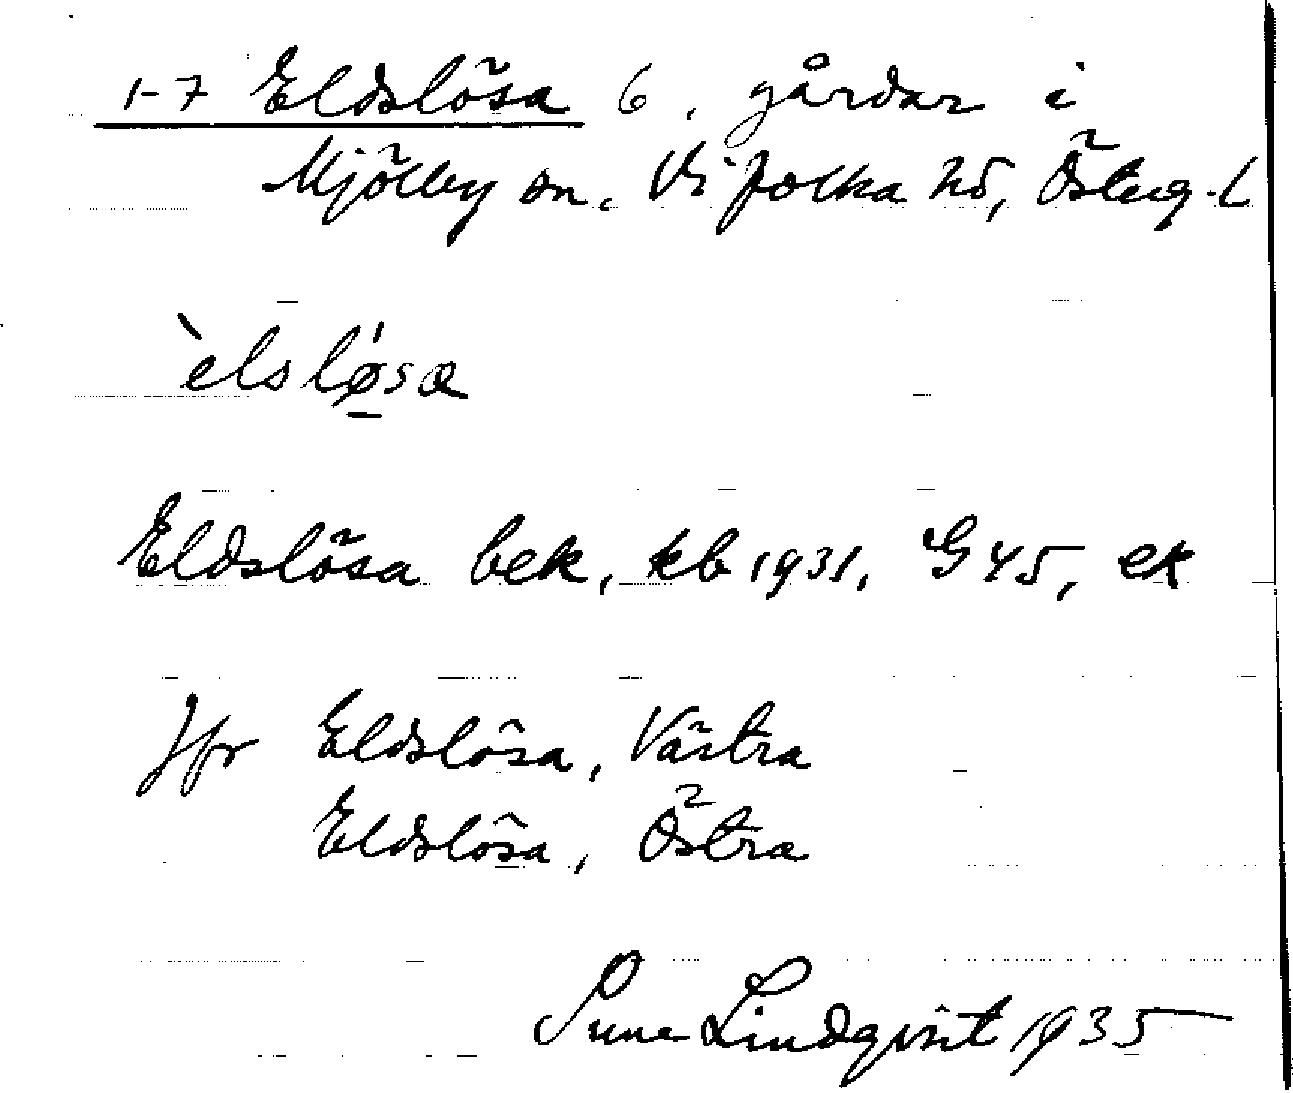 1-7 Eldslösa 6. gårdar i
Mjölby sn. Vifolka hd, Österg.l
`elsløsa
Eldslösa bek, kb 1931, G45, ek
Jfr Eldslösa, Västra
Eldslösa, Östra
Sune Lindqvist 1935